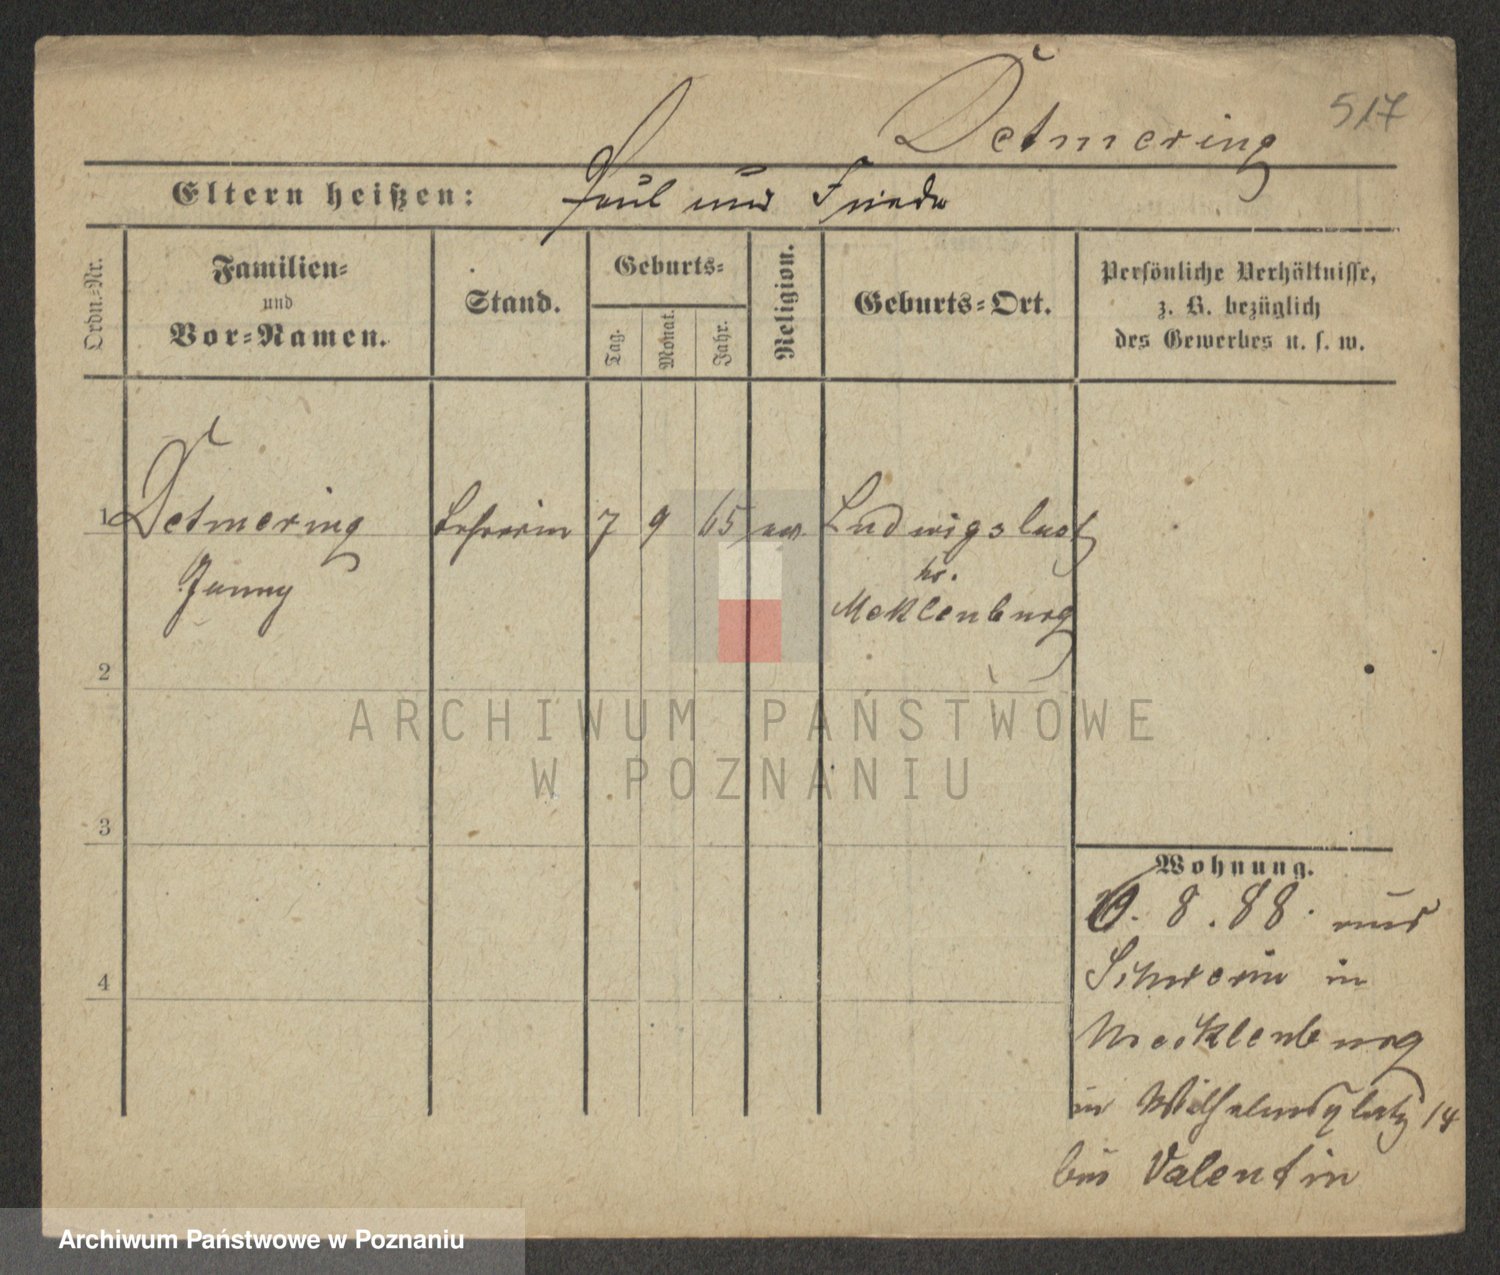 Detmering 517
Eltern heißen: Paul und Frieda
Ordn.-Nr.
Familien-
und
Vor-Namen.
Stand.
Geburts-
Tag.
Monat.
Jahr.
Religion.
Geburts-Ort.
Persönliche Verhältnisse,
z. B. bezüglich
des Gewerbes u. s. w.
1 Detmering Lehrerin 7 9 65 ev. Ludwigslust
Jenny
Meklenburg
2
3
4
Wohnung.
8. 88. aus
Schwerin in
Mecklenburg
in Wilhelmsplatz 14
bei Valentin
ARCHIWUM PAŃSTWOWE
W POZNANIU
Archiwum Państwowe w Poznaniu